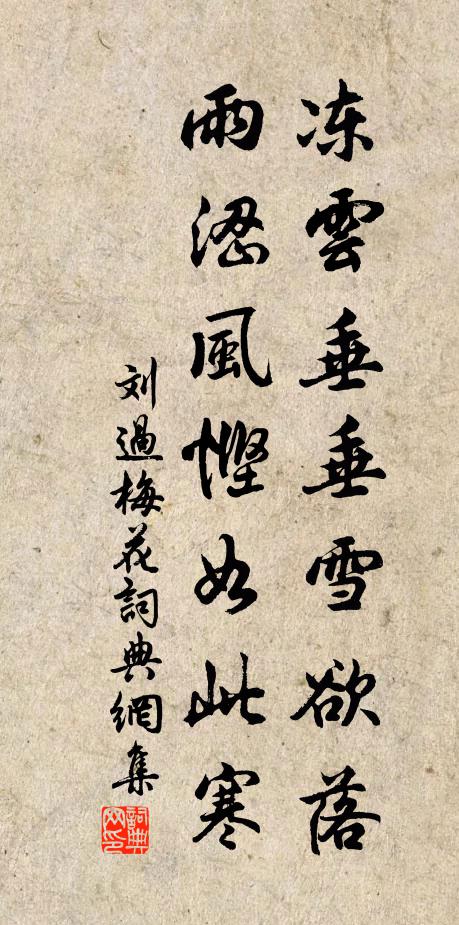 冻雲垂垂雪欲落
雨涩風慳如此寒
刘過梅花詞典網集
詞典
网印